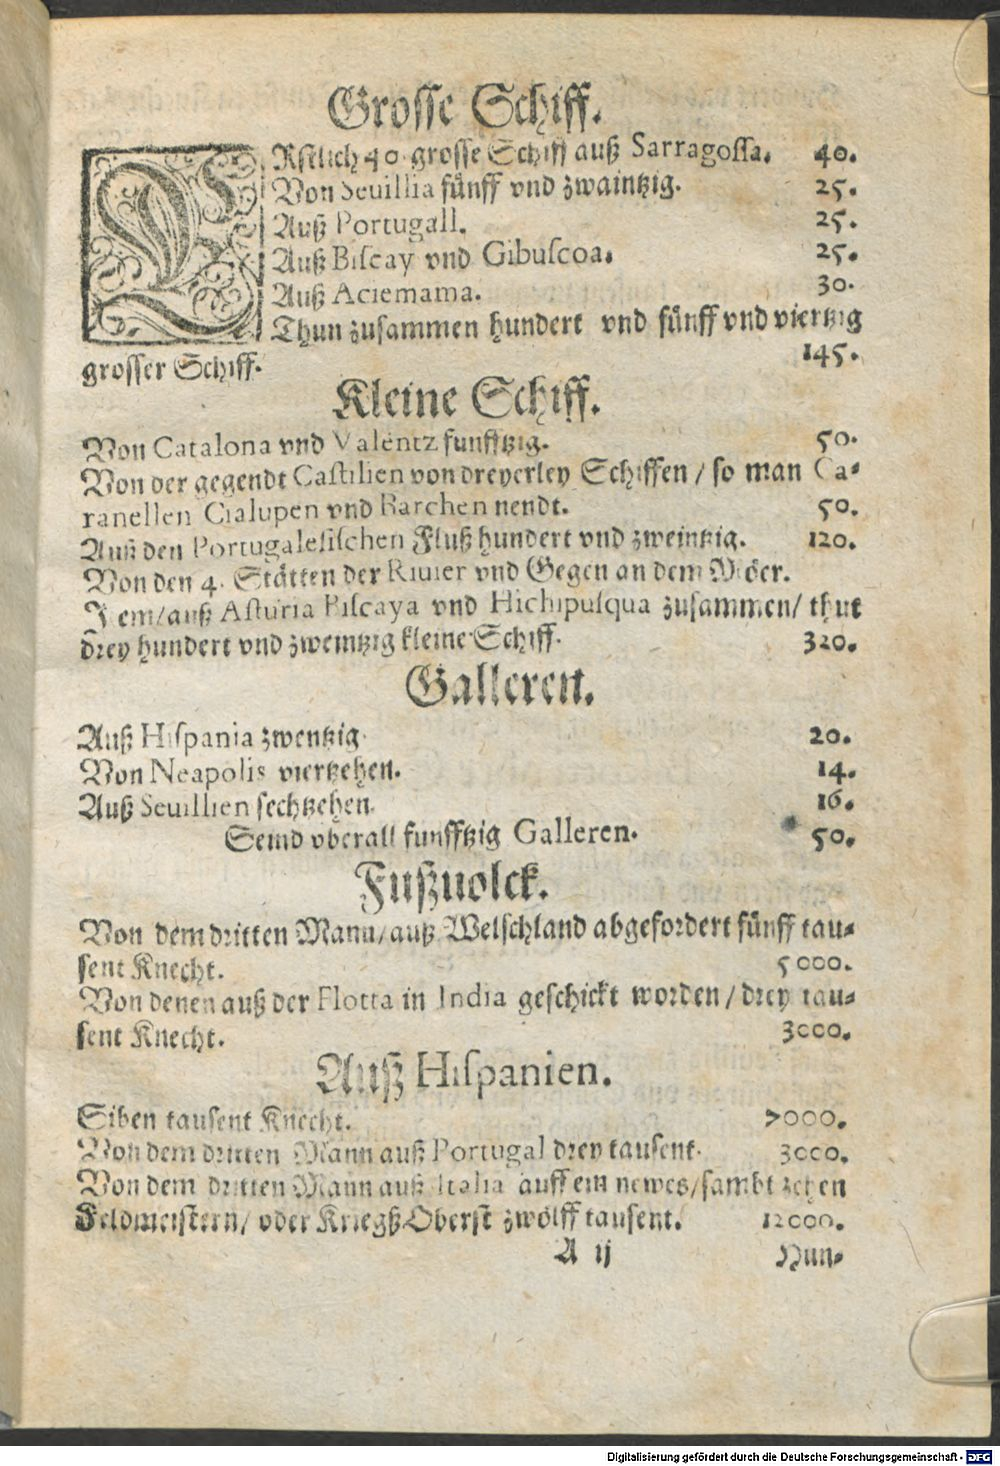 Grosse Schiff.
ERstlich 40 grosse Schiff auß Sarragossa. 40.
Von Seuillia fünff vnd zwaintzig. 25.
Auß Portugall. 25.
Auß Biscay vnd Gibuscoa. 25.
Auß Aciemama. 30.
Thun zusammen hundert vnd fünff vnd viertzig
grosser Schiff. 145.
Kleine Schiff.
Von Catalona vnd Valentz funfftzig. 50.
Von der gegendt Castilien von dreyerley Schiffen / so man Ca-
ranellen Cialupen vnd Barchen nendt. 50.
Auß den Portugalesischen Fluß hundert vnd zweintzig. 120.
Von den 4. Stätten der Riuier vnd Gegen an dem Möer.
Item / auß Asturia Biscaya vnd Hichipusqua zusammen / thut
drey hundert vnd zweintzig kleine Schiff. 320.
Galleren.
Auß Hispania zwentzig. 20.
Von Neapolis viertzehen. 14.
Auß Seuillien sechtzehen. 16.
Seind vberall funfftzig Galleren. 50.
Fußuolck.
Von dem dritten Mann / auß Welschland abgefordert fünff tau-
sent Knecht. 5000.
Von denen auß der Flotta in India geschickt worden / drey tau-
sent Knecht. 3000.
Auß Hispanien.
Siben tausent Knecht. 7000.
Von dem dritten Mann auß Portugal drey tausent. 3000.
Von dem dritten Mann auß Italia auff ein newes / sambt zehen
Feldmeistern / oder Kriegß Oberst zwölff tausent. 12000.
A ij Nun-
Digitalisierung gefördert durch die Deutsche Forschungsgemeinschaft - DFG